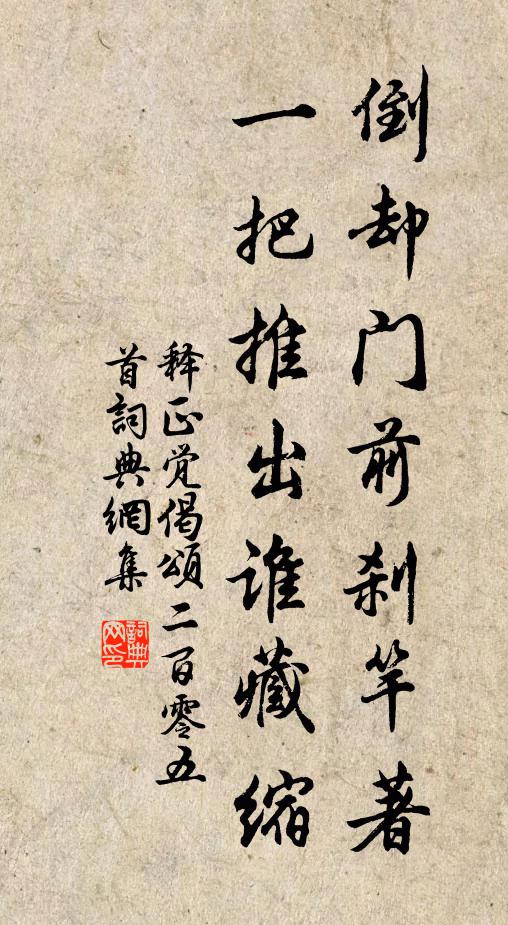 倒却门前刹竿著
一把推出谁藏缩
释正觉偈颂二百零五
首詞典網集
詞典
网印